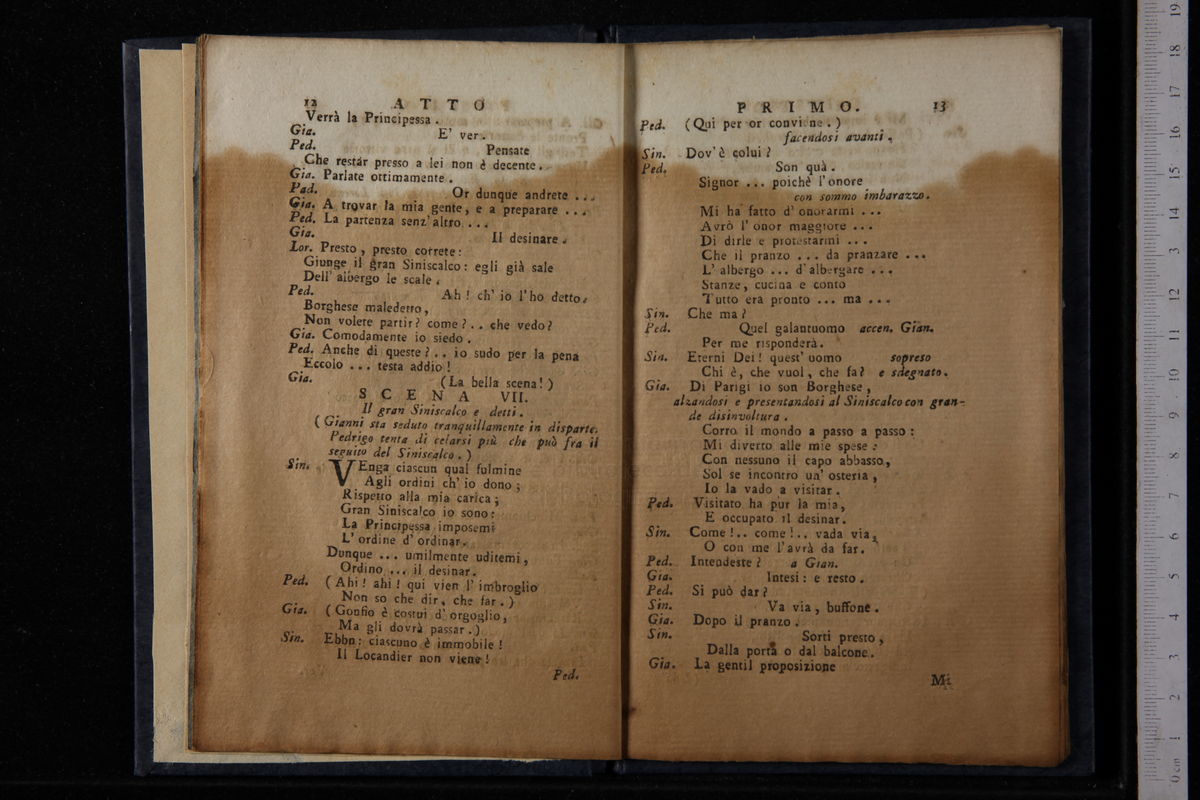 12 ATTO
Verrà la Principessa.
Gia. E' ver.
Ped. Pensate
Che restar presso a lei non è decente.
Gia. Parlate ottimamente.
Pad. Or dunque andrete ...
Gia. A trovar la mia gente, e a preparare ...
Ped. La partenza senz' altro ...
Gia. Il desinare.
Lor. Presto, presto correte:
Giunge il gran Siniscalco: egli già sale
Dell' albergo le scale.
Ped. Ah! ch' io l'ho detto.
Borghese maledetto,
Non volete partir? come?.. che vedo?
Gia. Comodamente io siedo.
Ped. Anche di queste?.. io sudo per la pena
Eccolo ... testa addio!
Gia. (La bella scena!)
SCENA VII.
Il gran Siniscalco e detti.
(Gianni sta seduto tranquillamente in disparte.
Pedrigo tenta di celarsi più che può fra il
seguito del Siniscalco.)
Sin. VEnga ciascun qual fulmine
Agli ordini ch' io dono;
Rispetto alla mia carica;
Gran Siniscalco io sono:
La Principessa imposemi
L' ordine d' ordinar.
Dunque ... umilmente uditemi,
Ordino ... il desinar.
Ped. (Ahi! ahi! qui vien l' imbroglio
Non so che dir, che far.)
Gia. (Gonfio è costui d' orgoglio,
Ma gli dovrà passar.)
Sin. Ebbn: ciascuno è immobile!
Il Locandier non viene!
Ped.
PRIMO. 13
Ped. (Qui per or conviene.)
facendosi avanti.
Sin. Dov' è colui?
Ped. Son quà.
Signor ... poichè l' onore
con sommo imbarazzo.
Mi ha fatto d' onorarmi ...
Avrò l' onor maggiore ...
Di dirle e protestarmi ...
Che il pranzo ... da pranzare ...
L' albergo ... d' albergare ...
Stanze, cucina e conto
Tutto era pronto ... ma ...
Sin. Che ma?
Ped. Quel galantuomo accen. Gian.
Per me risponderà.
Sin. Eterni Dei! quest' uomo sopreso
Chi è, che vuol, che fa? e sdegnato.
Gia. Di Parigi io son Borghese,
alzandosi e presentandosi al Siniscalco con gran-
de disinvoltura.
Corro il mondo a passo a passo:
Mi diverto alle mie spese:
Con nessuno il capo abbasso,
Sol se incontro un' osteria,
Io la vado a visitar.
Ped. Visitato ha pur la mia,
E occupato il desinar.
Sin. Come!.. come!.. vada via,
O con me l'avrà da far.
Ped. Intendeste? a Gian.
Gia. Intesi: e resto.
Ped. Si può dar?
Sin. Va via, buffone.
Gia. Dopo il pranzo.
Sin. Sorti presto,
Dalla porta o dal balcone.
Gia. La gentil proposizione
Mi
0 cm 1 2 3 4 5 6 7 8 9 10 11 12 13 14 15 16 17 18 19